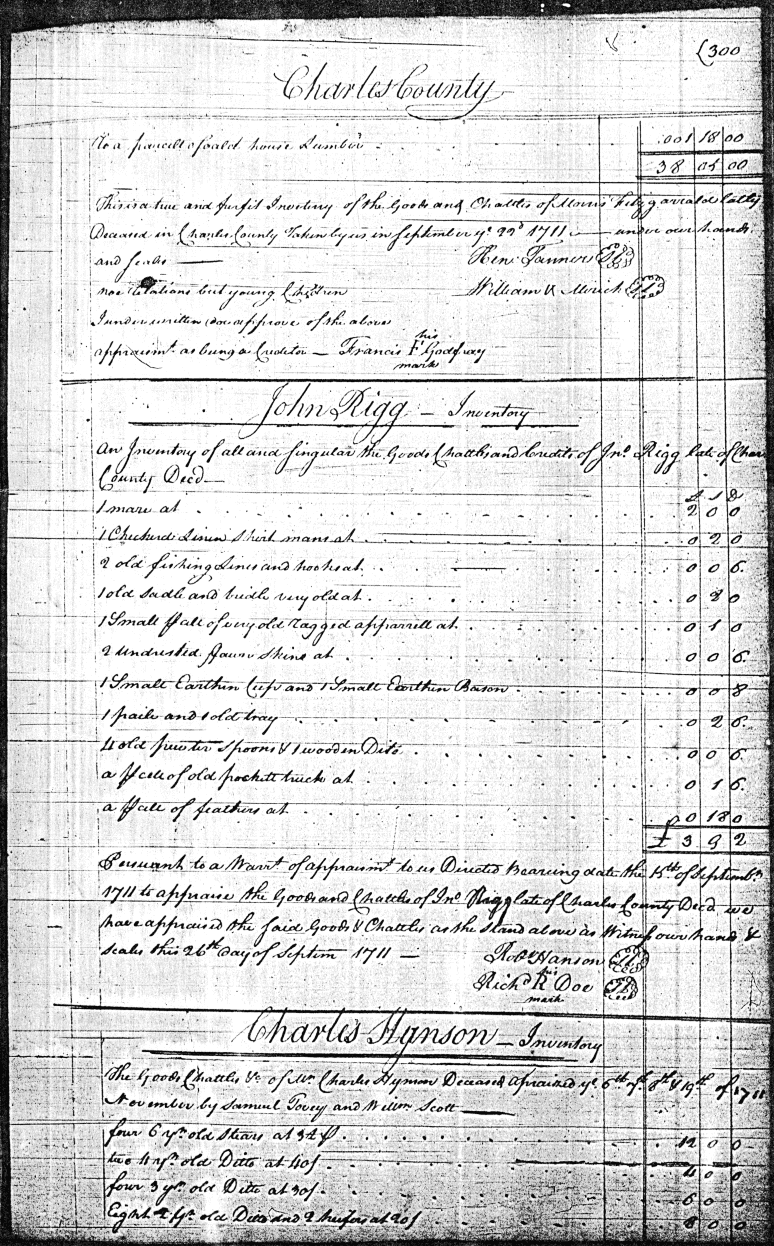 (300
Charles County
To a parcell of old house Lumber 001 18 00
38 05 00
This is a true and perfit Inventory of the Goods and Chattles of Morris Fitzgarald lattly
Deceased in Charles County Taken by us in September ye 22d 1711 — under our hands
and seals — Hen: Tanner
noe Relations but young Children William V Mirick
I underwritten doe approve of the above
appraismt as being a Creditor — Francis F Godfray
his
mark
John Rigg — Inventory
An Inventory of all and singular the Goods Chattles and Credits of Jno. Rigg late of Char
County Decd —
1 mare at 2 0 0
1 Checkerd Linen Shirt mans at 0 2 0
2 old fishing Lines and hooks at 0 0 6
1 old sadle and bridle very old at 0 2 0
1 Small Pcell of very old ragged apparrell at 0 1 0
2 undressed fawn skins at 0 0 6
1 Small Earthen Cup and 1 Small Earthen Bason 0 0 8
1 paile and 1 old tray 0 2 6
4 old pewter Spoons & 1 wooden Ditto 0 0 6
a Pcell of old pockett truck at 0 1 6
a Pcell of feathers at 0 18 0
£ 3 9 2
Persuant to a Warrt of appraismt to us Directed Bearing date the 15th of Septembr
1711 to appraise the Goods and Chattles of Jno. Rigg late of Charles County Decd we
have appraised the said Goods & Chattles as the stand above as Witness our hands &
seales this 26th day of Septem 1711 — Robt Hanson
his
Richd R Doe
mark
Charles Hynson — Inventory
The Goods Chattles &c of Mr. Charles Hynson Deceased apraized ye 6th 7th 8th & 19th of 1711
November by Samuel Tovey and Willm Scott —
four 6 yr old stears at 12 0 0
two 4 yr old Ditto at 40s 4 0 0
four 3 yr old Ditto at 30s 6 0 0
Eight 2 yr old Ditto and 2 heifers at 20s 8 0 0